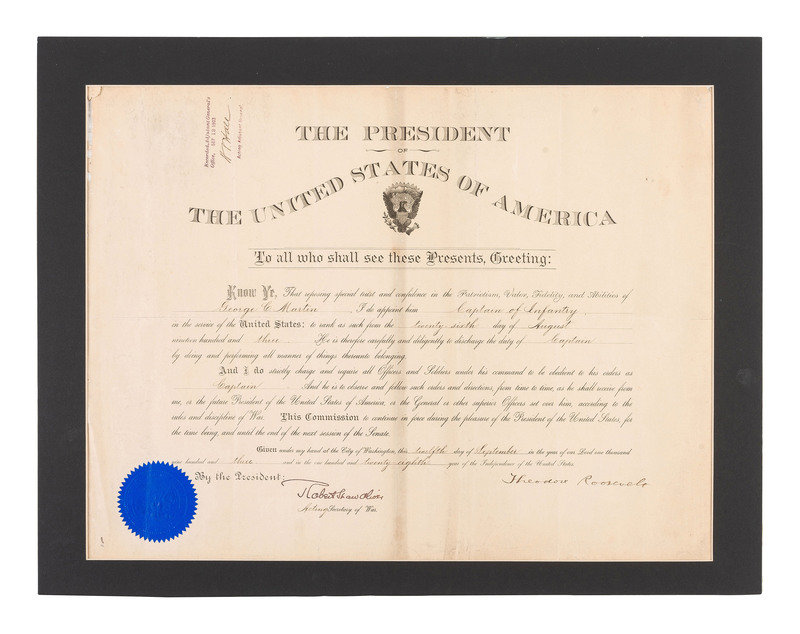 Recorded, Adjutant General's
Office, SEP 12 1903
Acting Adjutant General
THE PRESIDENT
OF
THE UNITED STATES OF AMERICA
To all who shall see these Presents, Greeting:
Know Ye, That reposing special trust and confidence in the Patriotism, Valor, Fidelity, and Abilities of
George C. Martin, I do appoint him Captain of Infantry,
in the service of the United States: to rank as such from the twenty sixth day of August
nineteen hundred and three. He is therefore carefully and diligently to discharge the duty of Captain
by doing and performing all manner of things thereunto belonging.
And I do strictly charge and require all Officers and Soldiers under his command to be obedient to his orders as
Captain. And he is to observe and follow such orders and directions, from time to time, as he shall receive from
me, or the future President of the United States of America, or the General or other superior Officers set over him, according to the
rules and discipline of War. This Commission to continue in force during the pleasure of the President of the United States, for
the time being, and until the end of the next session of the Senate.
Given under my hand at the City of Washington, this twelfth day of September in the year of our Lord one thousand
nine hundred and three and in the one hundred and twenty eighth year of the Independence of the United States.
By the President:
Theodore Roosevelt
Robert Shaw Oliver
Acting Secretary of War.